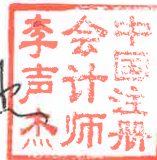 中国注册
会计师
李声杰